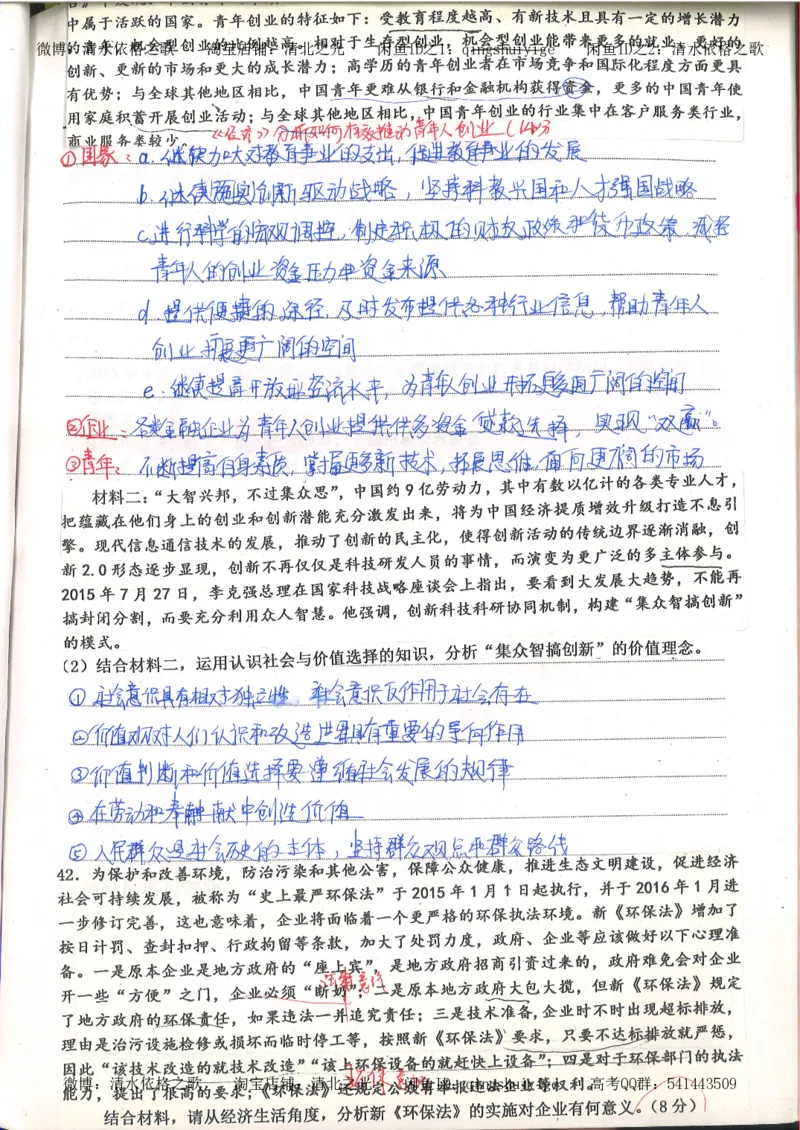 中属于活跃的国家。青年创业的特征如下：受教育程度越高、有新技术且具有一定的增长潜力
微博：清水依格之歌 淘宝店铺：清北之光 闲鱼ID之1：qingshuiyige 闲鱼ID之2：清水依格之歌
的青年，机会型创业的比例越高。相对于生存型创业，机会型创业能带来更多的就业、更好的
创新、更新的市场和更大的成长潜力；高学历的青年创业者在市场竞争和国际化程度方面更具
有优势；与全球其他地区相比，中国青年更难从银行和金融机构获得资金，更多的中国青年使
用家庭积蓄开展创业活动；与全球其他地区相比，中国青年创业的行业集中在客户服务类行业，
商业服务类较少。
《经济》分析如何有效推动青年人创业（14分
①国家：a.继续加大对教育事业的支出，促进教育事业的发展
b.继续施实创新驱动战略，坚持科教兴国和人才强国战略
c.进行科学的宏观调控，制定积极的财政政策和货币政策，减轻
青年人的创业资金压力和资金来源
d.提供便捷的途径，及时发布提供各种行业信息，帮助青年人
创业开展更广阔的空间
e.继续提高开放型经济水平，为青年人创业开拓更广阔的空间
②企业：各类金融企业为青年人创业提供多资金贷款选择，实现“双赢”。
③青年：不断提高自身素质，掌握更多新技术，拓展思维，面向更广阔的市场
材料二：“大智兴邦，不过集众思”，中国约9亿劳动力，其中有数以亿计的各类专业人才，
把蕴藏在他们身上的创业和创新潜能充分激发出来，将为中国经济提质增效升级打造不息引
擎。现代信息通信技术的发展，推动了创新的民主化，使得创新活动的传统边界逐渐消融，创
新2.0形态逐步显现，创新不再仅仅是科技研发人员的事情，而演变为更广泛的多主体参与。
2015年7月27日，李克强总理在国家科技战略座谈会上指出，要看到大发展大趋势，不能再
搞封闭分割，而要充分利用众人智慧。他强调，创新科技科研协同机制，构建“集众智搞创新”
的模式。
（2）结合材料二，运用认识社会与价值选择的知识，分析“集众智搞创新”的价值理念。
①社会意识具有相对独立性，社会意识反作用于社会存在
②价值观对人们认识和改造世界具有重要的导向作用
③价值判断和价值选择要遵循社会发展的规律
④在劳动和奉献中创造价值
⑤人民群众是社会历史的主体，坚持群众观点和群众路线
42．为保护和改善环境，防治污染和其他公害，保障公众健康，推进生态文明建设，促进经济
社会可持续发展，被称为“史上最严环保法”于2015年1月1日起执行，并于2016年1月进
一步修订完善，这也意味着，企业将面临着一个更严格的环保执法环境。新《环保法》增加了
按日计罚、查封扣押、行政拘留等条款，加大了处罚力度，政府、企业等应该做好以下心理准
备。一是原本企业是地方政府的“座上宾”，是地方政府招商引资过来的，政府难免会对企业
开一些“方便”之门，企业必须“断奶”；二是原本地方政府大包大揽，但新《环保法》规定
了地方政府的环保责任，如果违法一并追究责任；三是技术准备，企业时不时出现超标排放，
理由是治污设施检修或损坏而临时停工等，按照新《环保法》要求，只要不达标排放就严惩，
因此“该技术改造的就技术改造”“该上环保设备的就赶快上设备”；四是对于环保部门的执法
微博：清水依格之歌 淘宝店铺：清北之光 高考QQ群：541443509
能力，提出了很高的要求；《环保法》还规定公众有举报违法企业等权利。
结合材料，请从经济生活角度，分析新《环保法》的实施对企业有何意义。（8分）